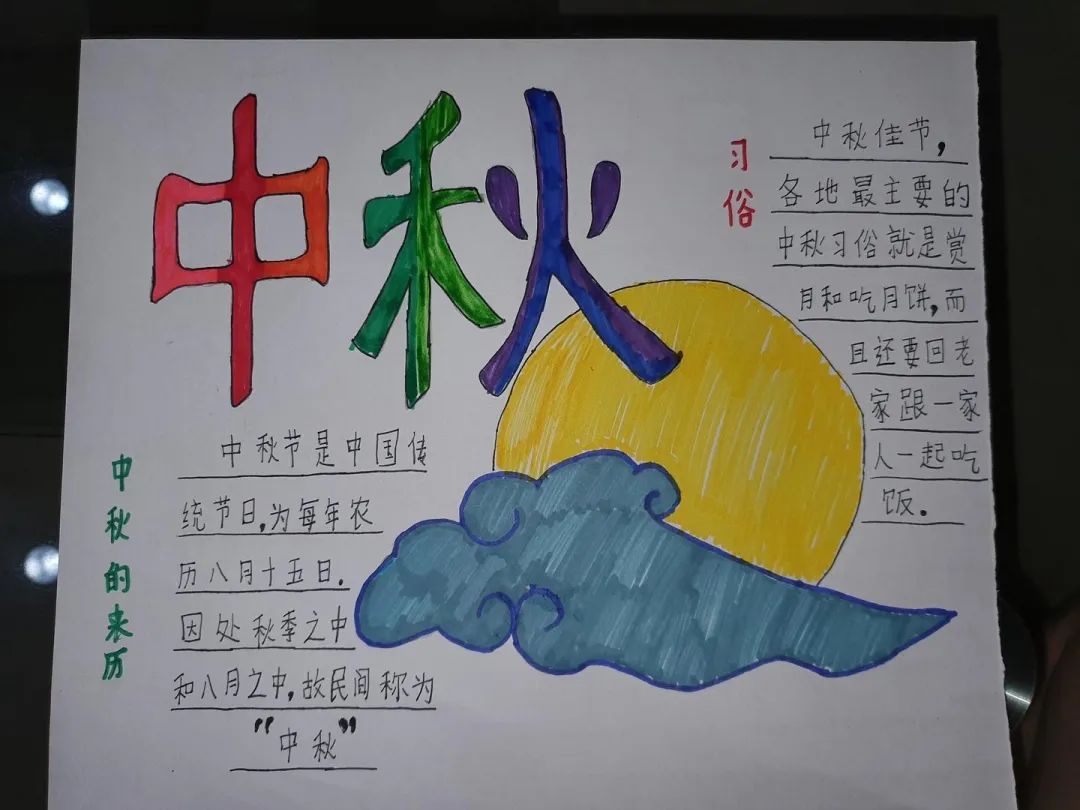 中秋
习俗
中秋佳节，
各地最主要的
中秋习俗就是赏
月和吃月饼，而
且还要回老
家跟一家
人一起吃
饭．
中秋的来历
中秋节是中国传
统节日，为每年农
历八月十五日．
因处秋季之中
和八月之中，故民间称为
“中秋”